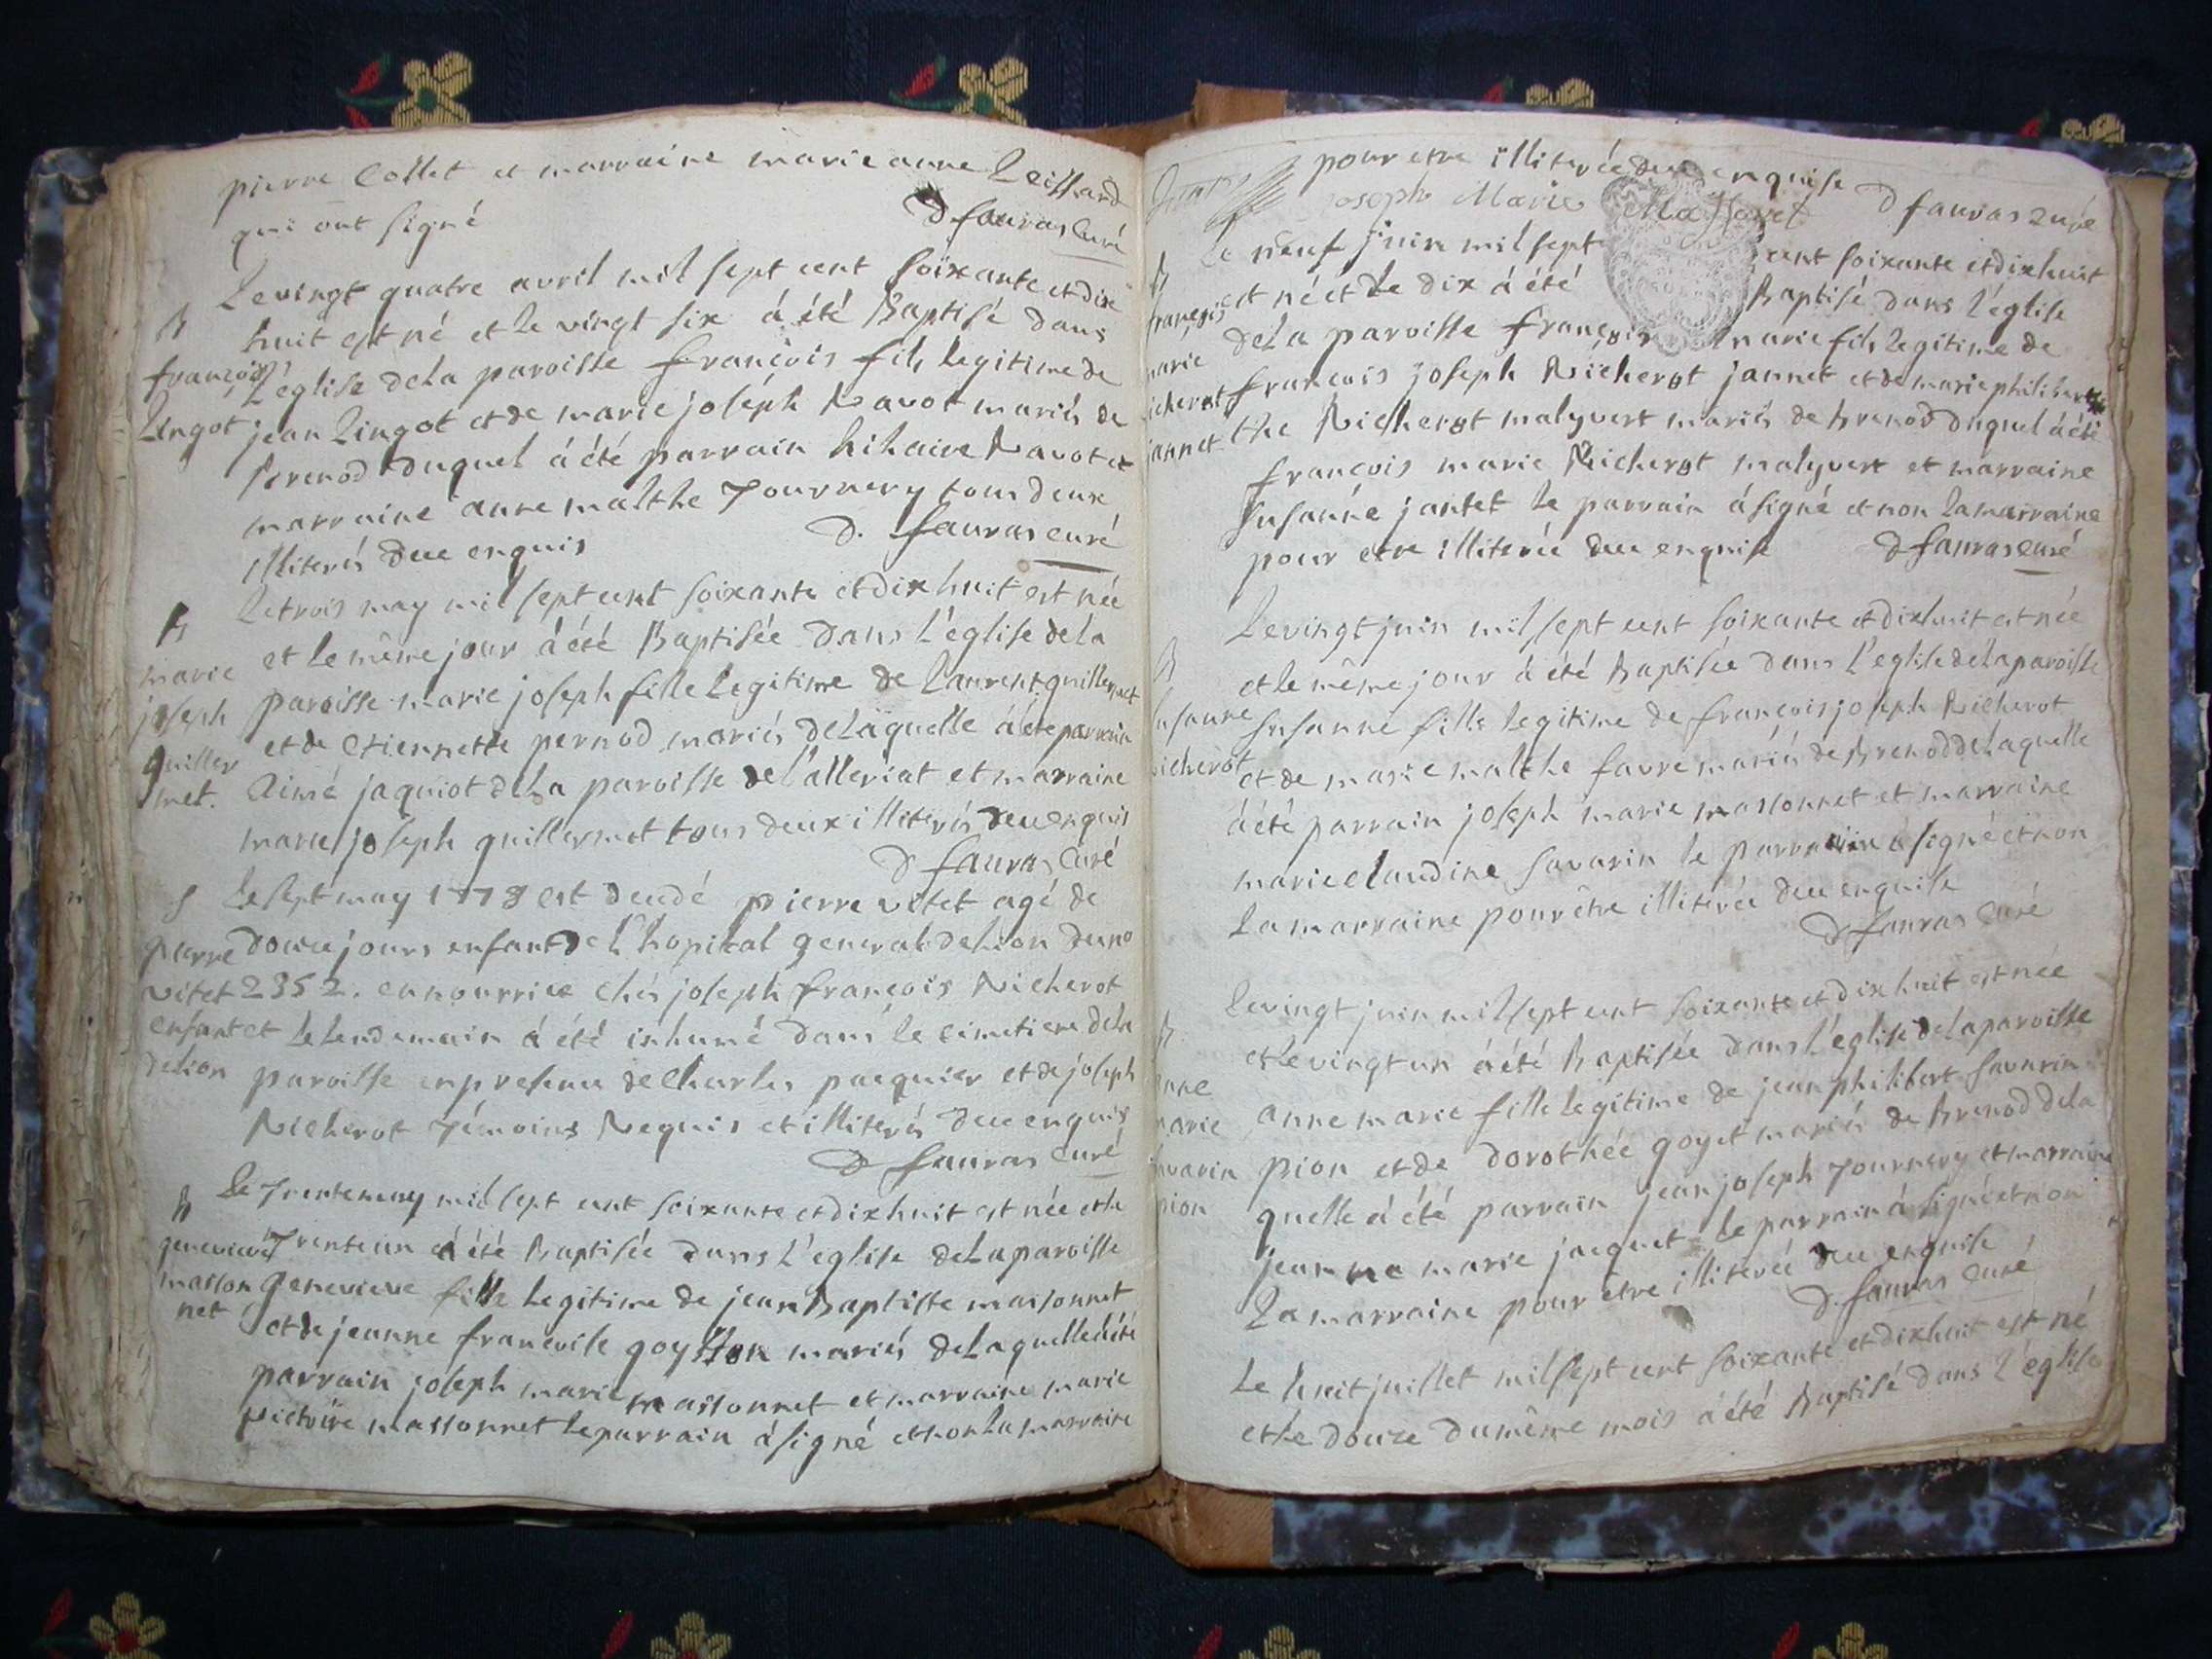 pierre Collet et marraine marie anne
qui ont signé
D fauras Curé
Le vingt quatre avril mil sept cent soixante et dix
B
huit est né et le vingt six á été Baptisé dans
françois
L'église de La paroisse françois fils legitime de
Lingot
jean Lingot et de marie joseph Ravot mariés de
Brenod duquel á été parrain hilaire Ravot et
marraine anne malthe Tournery tous deux
illiterés deue enquis
D. fauras curé
Le trois may mil sept cent soixante et dix huit est née
B
et le même jour á été Baptisée dans L'église de La
marie
joseph
paroisse marie joseph fille Legitime de Laurent guillermet
guiller
met.
et de Etiennette pernod mariés de Laquelle á été parrain
Aimé jaquiot de La paroisse de l'alleriat et marraine
marie joseph guillermet tous deux illiterés deue enquis
D fauras Curé
S
Le sept may 1778 est decedé pierre vitet agé de
pierre
douze jours enfant de L'hopital general de Lion
vitet
2352. en nourrice chés joseph françois Richerot
enfant
et Le Lendemain á été inhumé dans le cimetiere de La
de Lion
paroisse en presence de Charles pacquier et de joseph
Richerot Témoins Requis et illiterés deue enquis
D fauras Curé
B
Le Trente may mil sept cent soixante et dix huit est née et le
genevieve
Trente un á été Baptisée dans L'église de La paroisse
masson
net
genevieve fille Legitime de jean Baptiste massonnet
et de jeanne françoise goyffon mariés de Laquelle á été
parrain joseph marie massonnet et marraine marie
victoire massonnet le parrain á signé et non La marraine
pour etre illiterée deue enquise
Joseph Marie Massonet
D fauras Curé
Le neuf juin mil sept cent soixante et dix huit
B
est né et Le dix á été Baptisé dans L'église
françois
marie
de La paroisse françois marie fils Legitime de
richerot
françois joseph Richerot jannet et de marie
jannet
the Richerot malyvert mariés de Brenod duquel á été
françois marie Richerot malyvert et marraine
Susanne jantet le parrain á signé et non La marraine
pour etre illiterée deue enquise
D fauras curé
Le vingt juin mil sept cent soixante et dix huit est née
B
et le même jour á été Baptisée dans L'église de La paroisse
susanne
Susanne fille Legitime de françois joseph Richerot
richerot
et de marie malthe favre mariés de Brenod de Laquelle
á été parrain joseph marie massonnet et marraine
marie claudine Savarin le parrain á signé et non
La marraine pour être illiterée deue enquise
D fauras Curé
Le vingt juin mil sept cent soixante et dix huit est née
B
et Le vingt un á été Baptisée dans L'église de La paroisse
anne
marie
anne marie fille Legitime de jean philibert Savarin
savarin
pion
pion et de dorothée goyet mariés de Brenod de La
quelle á été parrain jean joseph Tournery et marraine
jeanne marie jacquet le parrain á signé et non
La marraine pour être illiterée deue enquise
D. fauras Curé
Le huit juillet mil sept cent soixante et dix huit est né
et Le douze du même mois á été Baptisé dans L'église